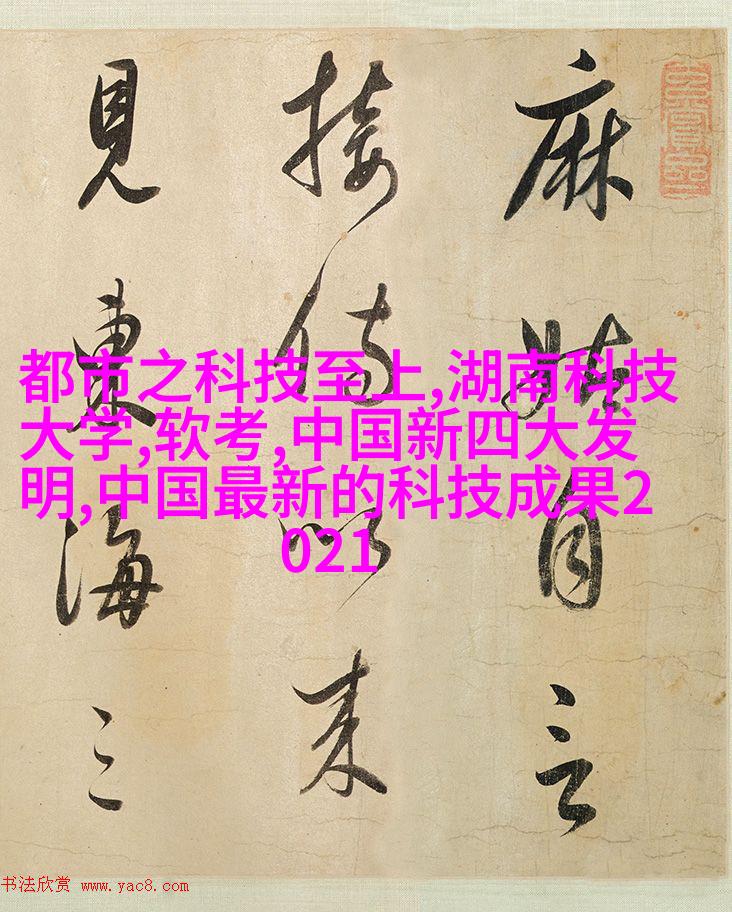 麻姑自言
接侍以来
見東海三
都市之科技至上,湖南科技
大学,软考,中国新四大发
明,中国最新的科技成果2
021
书法欣赏 www.yac8.com